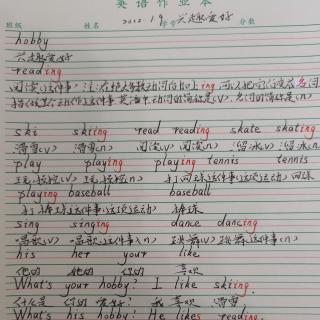 英语作业本
班级 姓名 2022.1.9 学号 兴趣爱好 分数
hobby
兴趣爱好
reading
阅读(这件事) 注:在绝大多数动词后加上ing,可以把它变成名词
指做某个动作这件事 英语中动词的简称是(v),名词的简称是(n)
ski skiing read reading skate skating
滑雪(v) 滑雪(n) 阅读(v) 阅读(n) 溜冰(v) 溜冰(n)
play playing playing tennis tennis
玩(v) 玩(n) 打网球(这件事)(这项运动) 网球
playing baseball baseball
打棒球(这件事)(这项运动) 棒球
sing singing dance dancing
唱歌(v) 唱歌(这件事)(n) 跳舞(v) 跳舞(这件事)(n)
his her your like
他的 她的 你的 喜欢
What's your hobby? I like skiing.
什么是 你的 爱好? 我 喜欢 滑雪
What's his hobby? He likes reading.